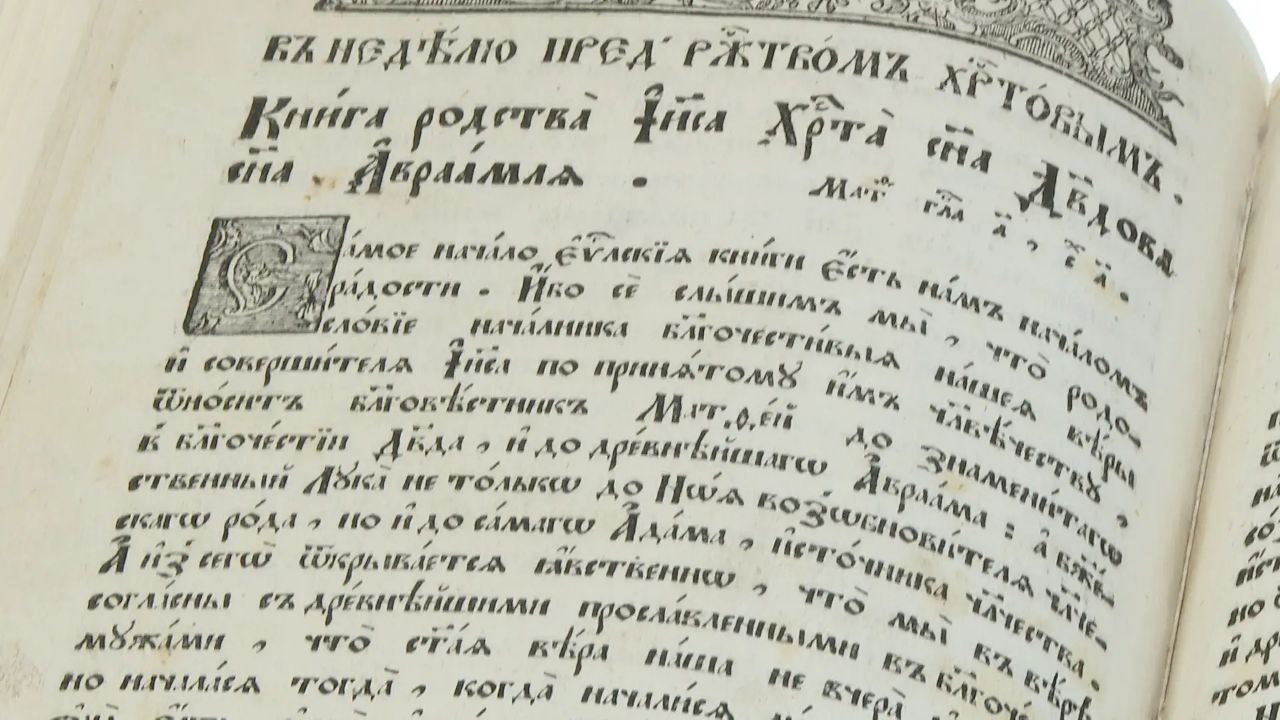 Въ недѣлю предъ рж҃твомъ хр҃то́вымъ.
Кни́га родства̀ І҆и҃са Хр҃та̀ сн҃а Дв҃дова
сн҃а А҆враа́мля. Матѳ҃ гла҃ а҃, ст҃ а҃.
Са́мое нача́ло є҆ѵ҃лскїѧ кни́ги є҆́сть на́мъ нача́ломъ
ра́дости. И҆́бо сѐ слы́шимъ мы̀, что̀ родо-
сло́вїе нача́лника бл҃гочести́выѧ на́шеѧ вѣ́ры
и҆ соверши́телѧ І҆и҃са по принѧ́тому и҆́мъ чл҃вѣ́честву
ѿно́ситъ бл҃говѣ́стникъ Матѳе́й до знамени́тагѡ
в̾ бл҃гоче́стїи Дв҃да, и҆ до древнѣ́йшагѡ А҆враа́ма: а҆ бж҃е-
ственный Лука̀ не то́лькѡ до Нѡ́ѧ возѡбнови́телѧ чл҃че-
скагѡ ро́да, но и҆ до са́магѡ А҆да́ма, и҆сто́чника чл҃чества.
А҆ и҆з̾ сегѡ̀ ѿкрыва́етсѧ ꙗ҆́вственнѡ, что̀ мы̀ въ вѣ́рѣ
согла́сны съ древнѣ́йшими просла́вленными въ бл҃гоче́-
мужа́ми, что̀ ст҃а́ѧ вѣ́ра на́ша не вчера̀
но нача́ласѧ тогда̀, когда̀ нача́лисѧ